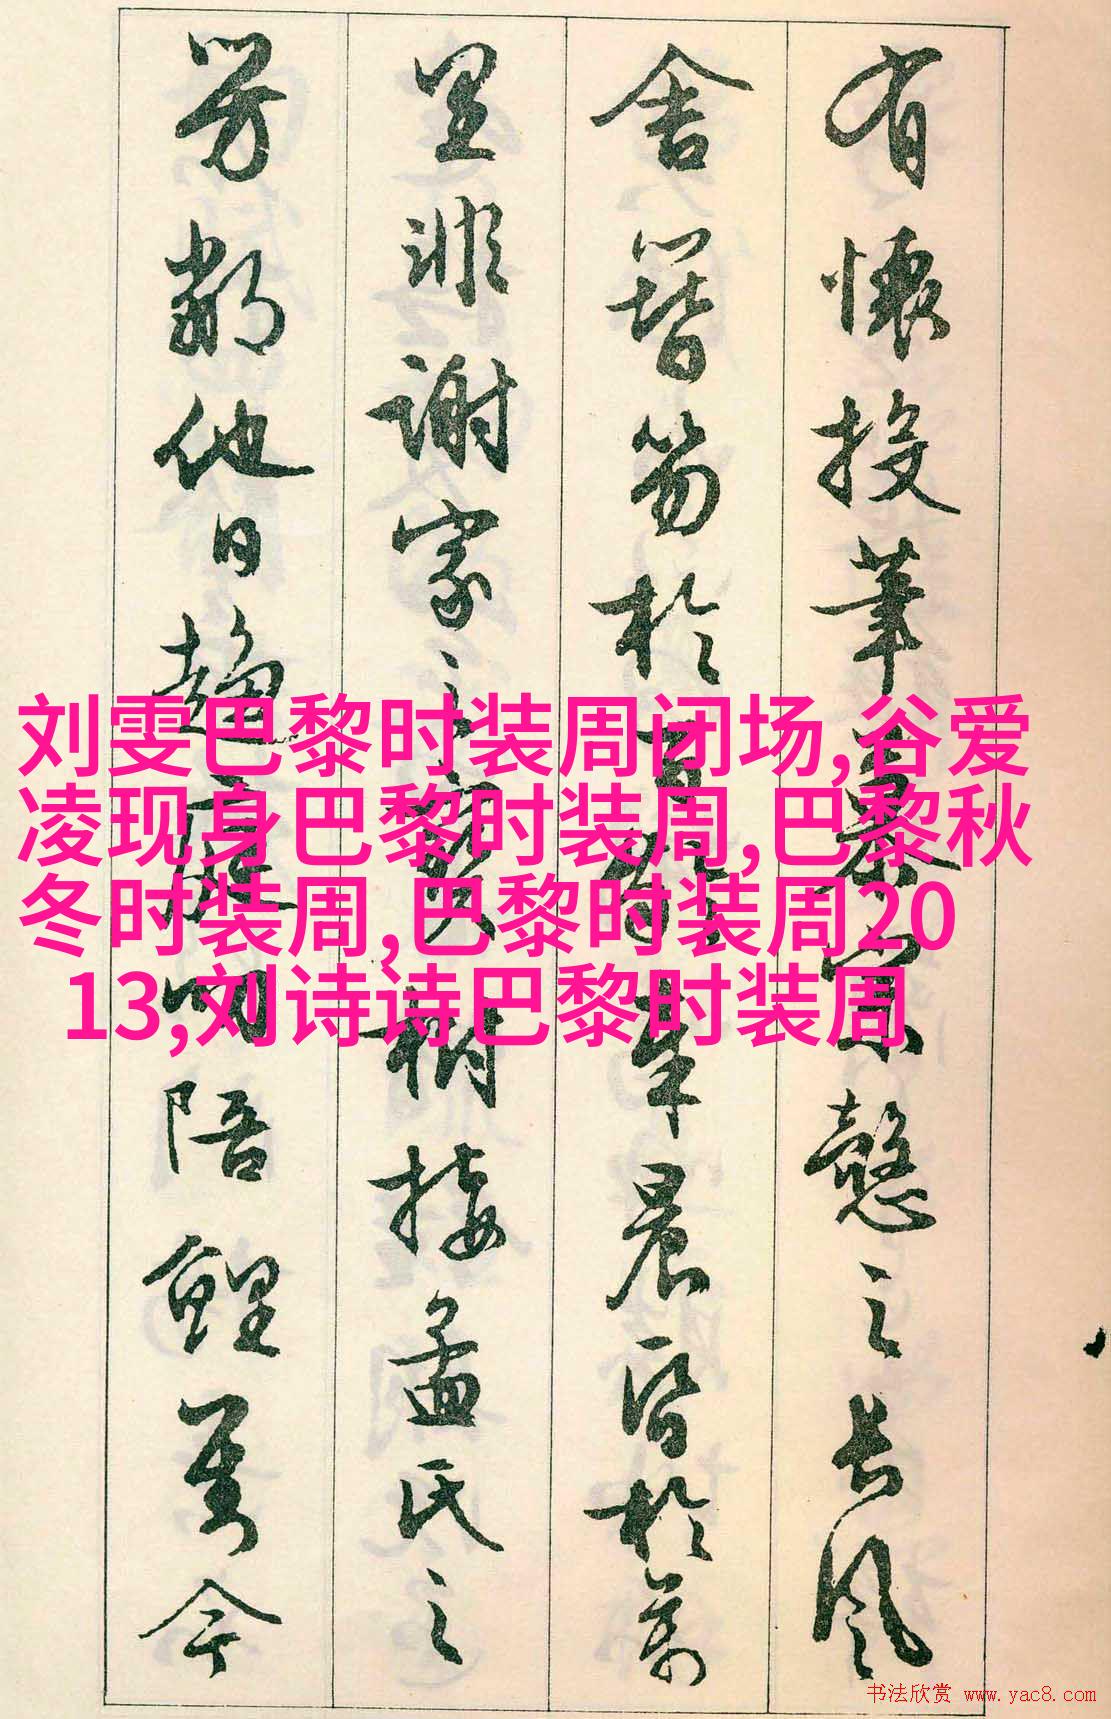 有懷投筆慕宗愨之長風
舍簪笏於百齡奉晨昏於萬
里非謝家之寶樹接孟氏之
芳鄰他日趨庭叨陪鯉對今
刘雯巴黎时装周闭场,谷爱
凌现身巴黎时装周,巴黎秋
冬时装周,巴黎时装周20
13,刘诗诗巴黎时装周
书法欣赏 www.yac8.com